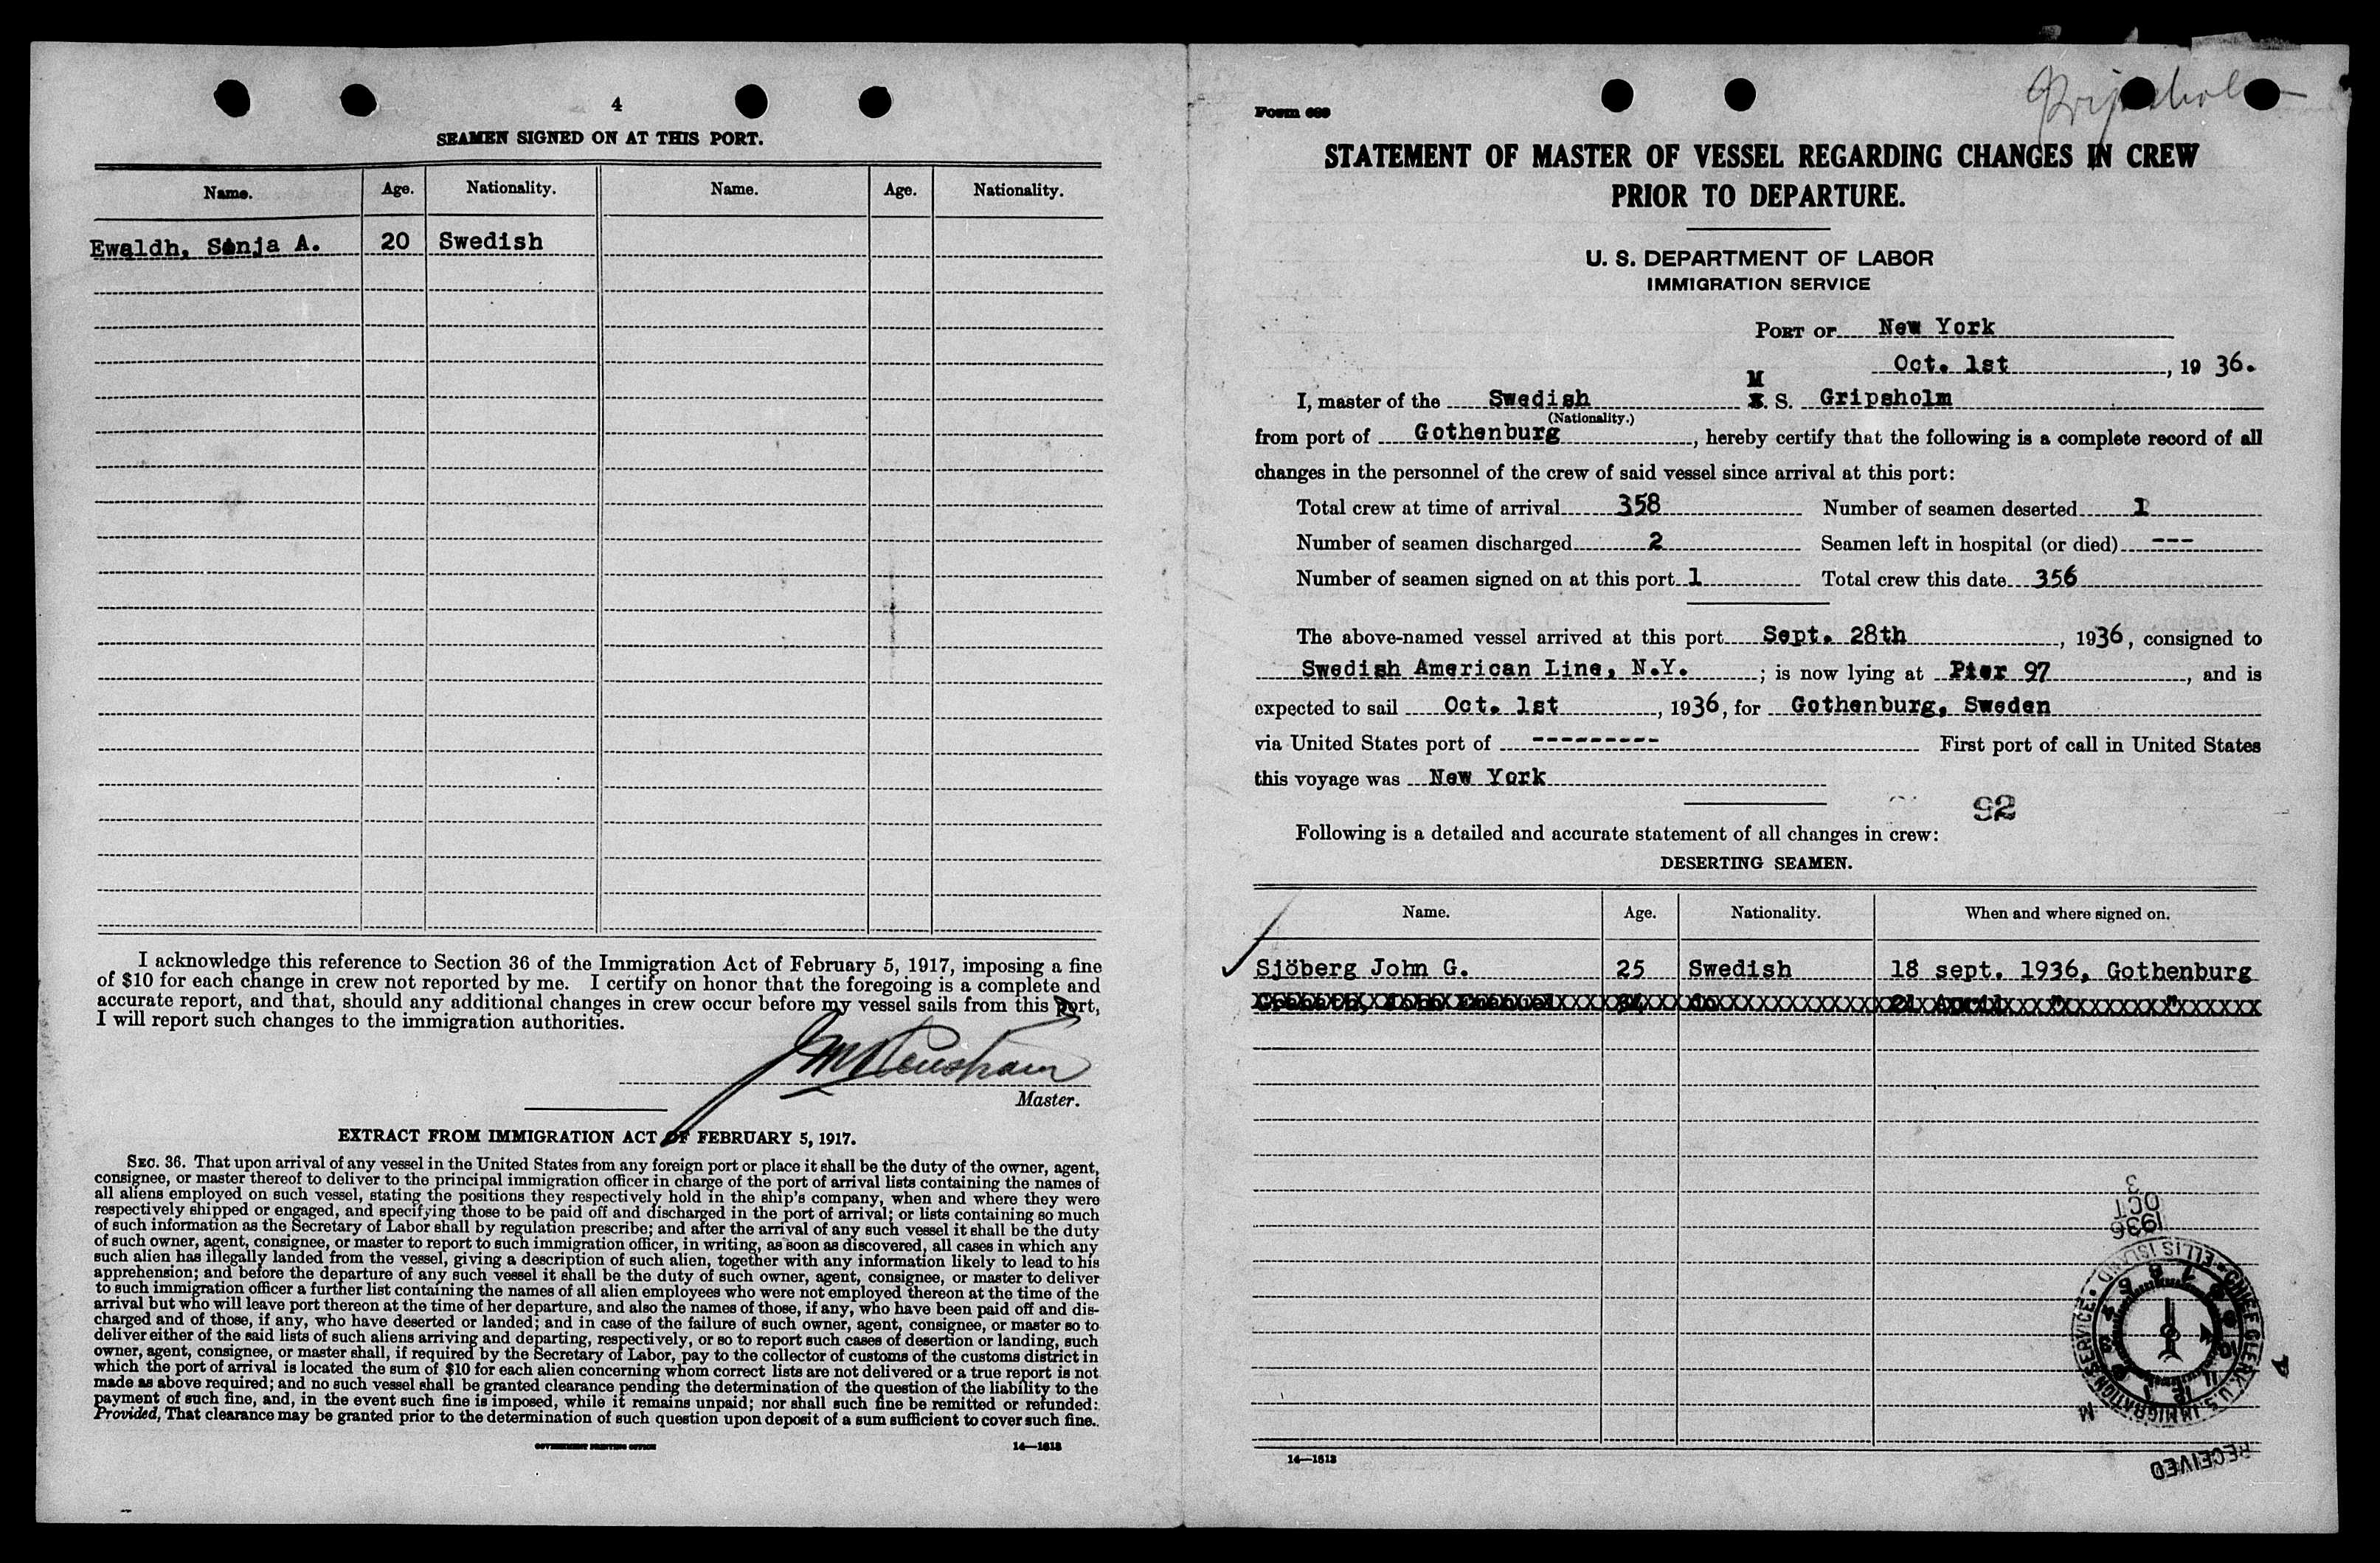 4
SEAMEN SIGNED ON AT THIS PORT.
Name. Age. Nationality. Name. Age. Nationality.
Ewaldh, Sonja A. 20 Swedish
I acknowledge this reference to Section 36 of the Immigration Act of February 5, 1917, imposing a fine
of $10 for each change in crew not reported by me. I certify on honor that the foregoing is a complete and
accurate report, and that, should any additional changes in crew occur before my vessel sails from this port,
I will report such changes to the immigration authorities.
Master.
EXTRACT FROM IMMIGRATION ACT OF FEBRUARY 5, 1917.
SEC. 36. That upon arrival of any vessel in the United States from any foreign port or place it shall be the duty of the owner, agent,
consignee, or master thereof to deliver to the principal immigration officer in charge of the port of arrival lists containing the names of
all aliens employed on such vessel, stating the positions they respectively hold in the ship's company, when and where they were
respectively shipped or engaged, and specifying those to be paid off and discharged in the port of arrival; or lists containing so much
of such information as the Secretary of Labor shall by regulation prescribe; and after the arrival of any such vessel it shall be the duty
of such owner, agent, consignee, or master to report to such immigration officer, in writing, as soon as discovered, all cases in which any
such alien has illegally landed from the vessel, giving a description of such alien, together with any information likely to lead to his
apprehension; and before the departure of any such vessel it shall be the duty of such owner, agent, consignee, or master to deliver
to such immigration officer a further list containing the names of all alien employees who were not employed thereon at the time of the
arrival but who will leave port thereon at the time of her departure, and also the names of those, if any, who have been paid off and dis-
charged and of those, if any, who have deserted or landed; and in case of the failure of such owner, agent, consignee, or master so to
deliver either of the said lists of such aliens arriving and departing, respectively, or so to report such cases of desertion or landing, such
owner, agent, consignee, or master shall, if required by the Secretary of Labor, pay to the collector of customs of the customs district in
which the port of arrival is located the sum of $10 for each alien concerning whom correct lists are not delivered or a true report is not
made as above required; and no such vessel shall be granted clearance pending the determination of the question of the liability to the
payment of such fine, and, in the event such fine is imposed, while it remains unpaid; nor shall such fine be remitted or refunded:
Provided, That clearance may be granted prior to the determination of such question upon deposit of a sum sufficient to cover such fine.
GOVERNMENT PRINTING OFFICE 14—1513
Gripsholm
Form 689
STATEMENT OF MASTER OF VESSEL REGARDING CHANGES IN CREW
PRIOR TO DEPARTURE.
U. S. DEPARTMENT OF LABOR
IMMIGRATION SERVICE
PORT OF New York
Oct. 1st, 1936.
I, master of the Swedish M S. Gripsholm
(Nationality.)
from port of Gothenburg, hereby certify that the following is a complete record of all
changes in the personnel of the crew of said vessel since arrival at this port:
Total crew at time of arrival 358 Number of seamen deserted 1
Number of seamen discharged 2 Seamen left in hospital (or died) ---
Number of seamen signed on at this port 1 Total crew this date 356
The above-named vessel arrived at this port Sept. 28th, 1936, consigned to
Swedish American Line, N.Y.; is now lying at Pier 97, and is
expected to sail Oct. 1st, 1936, for Gothenburg, Sweden
via United States port of ---------- First port of call in United States
this voyage was New York
92
Following is a detailed and accurate statement of all changes in crew:
DESERTING SEAMEN.
Name. Age. Nationality. When and where signed on.
Sjöberg John G. 25 Swedish 18 sept. 1936, Gothenburg
14—1513
1936
OCT
3
CHIEF CLERK, U.S. IMMIGRATION SERVICE • ELLIS ISLAND •
RECEIVED